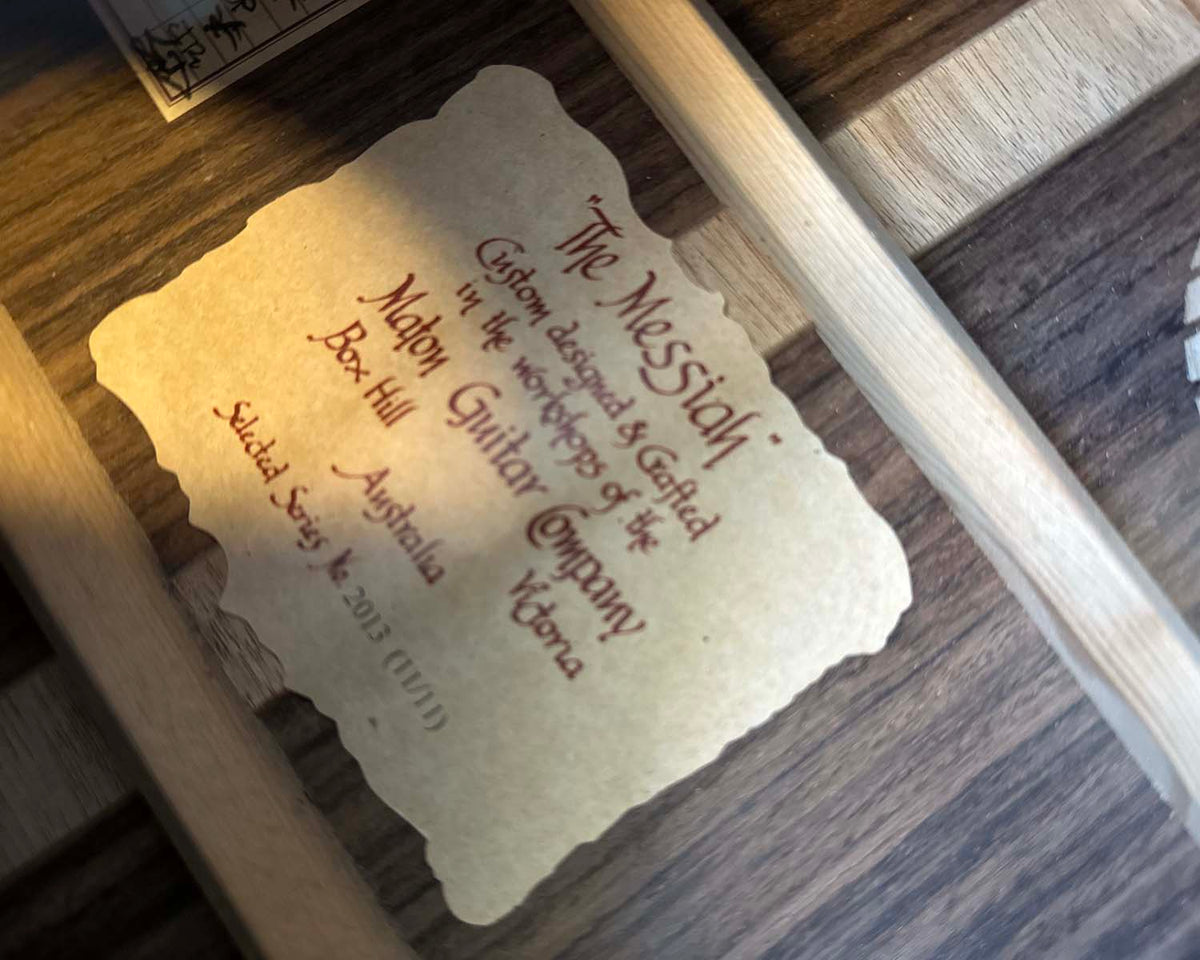 "The Messiah"
Custom designed & Crafted
in the workshops of the
Maton Guitar Company
Box Hill Victoria
Australia
Selected Series No. 2013 (11/11)